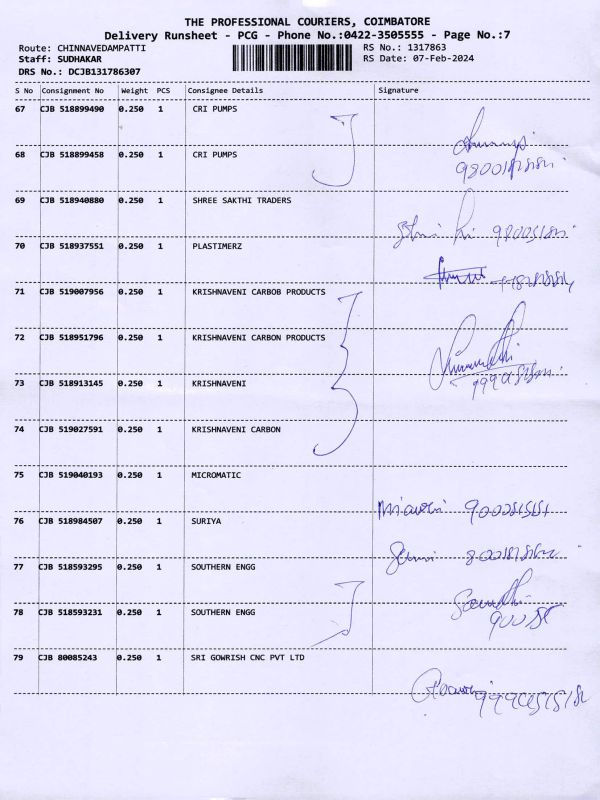 THE PROFESSIONAL COURIERS, COIMBATORE
Delivery Runsheet - PCG - Phone No.:0422-3505555 - Page No.:7
Route: CHINNAVEDAMPATTI RS No.: 1317863
Staff: SUDHAKAR RS Date: 07-Feb-2024
DRS No.: DCJB131786307
S No Consignment No Weight PCS Consignee Details Signature
67 CJB 518899490 0.250 1 CRI PUMPS
68 CJB 518899458 0.250 1 CRI PUMPS
69 CJB 518940880 0.250 1 SHREE SAKTHI TRADERS
70 CJB 518937551 0.250 1 PLASTIMERZ
71 CJB 519007956 0.250 1 KRISHNAVENI CARBOB PRODUCTS
72 CJB 518951796 0.250 1 KRISHNAVENI CARBON PRODUCTS
73 CJB 518913145 0.250 1 KRISHNAVENI
74 CJB 519027591 0.250 1 KRISHNAVENI CARBON
75 CJB 519040193 0.250 1 MICROMATIC
76 CJB 518984507 0.250 1 SURIYA
77 CJB 518593295 0.250 1 SOUTHERN ENGG
78 CJB 518593231 0.250 1 SOUTHERN ENGG
79 CJB 80085243 0.250 1 SRI GOWRISH CNC PVT LTD